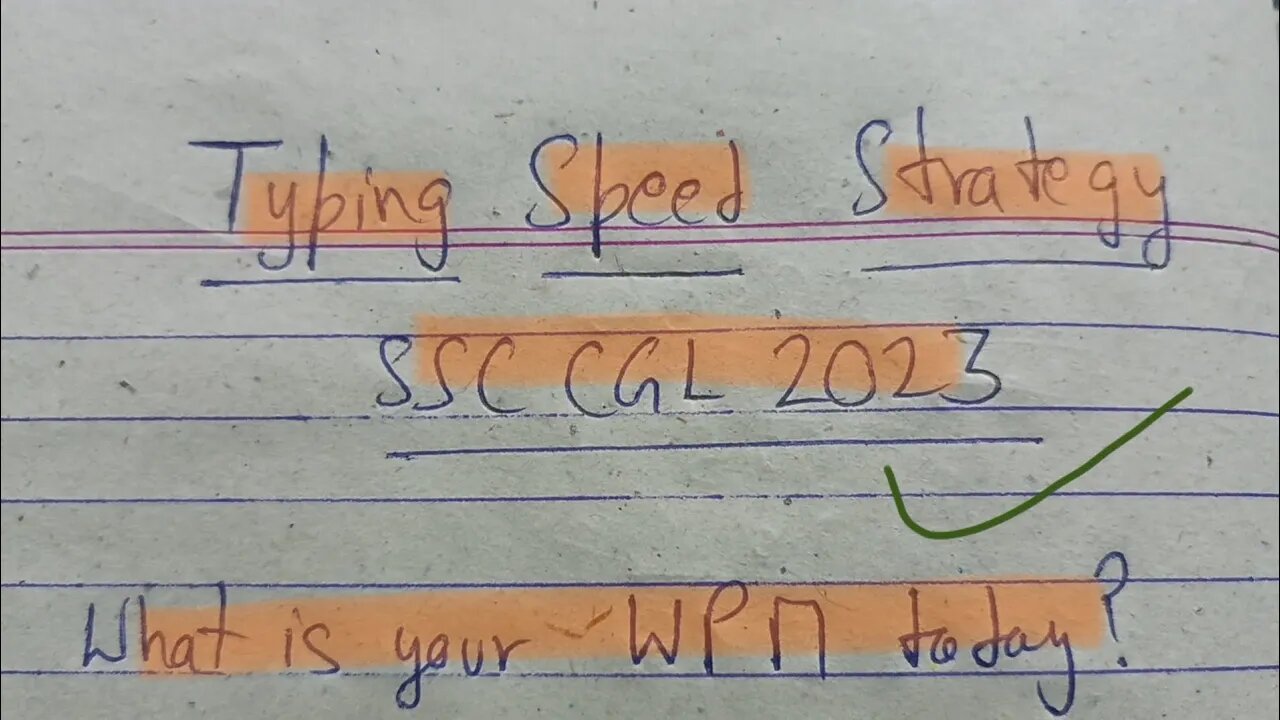 Typing Speed Strategy
SSC CGL 2023
What is your WPM today?